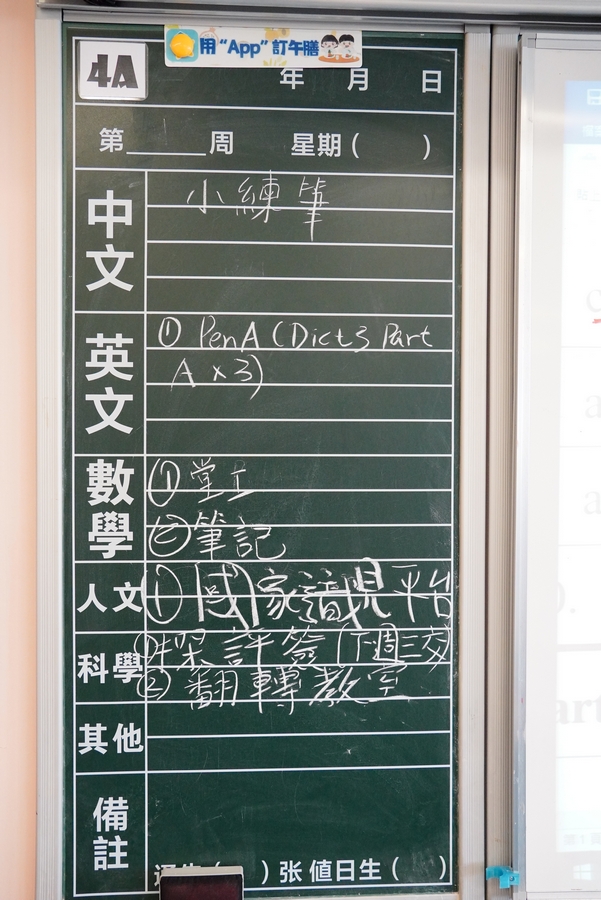 用“App”訂午膳
4A
年 月 日
第______周 星期( )
中文
小練筆
英文
① PenA (Dict 3 Part
A x 3)
數學
① 堂工
② 筆記
人文
① 國家 平台
科學
評 (下週三交)
② 翻轉教室
其他
備註
( )张 值日生( )